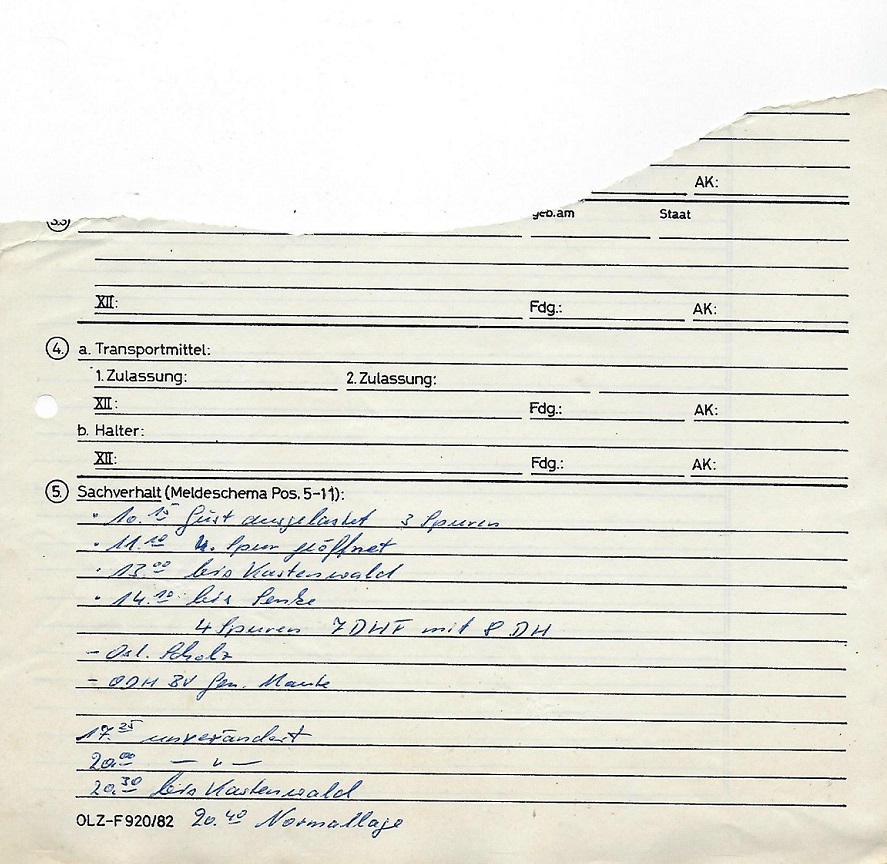 AK:
3.3 geb.am Staat
XII: Fdg.: AK:
4. a. Transportmittel:
1. Zulassung: 2. Zulassung:
XII: Fdg.: AK:
b. Halter:
XII: Fdg.: AK:
5. Sachverhalt (Meldeschema Pos. 5-11):
· 10.15 Güst ausgelastet 3 Spuren
· 11.10 4. Spur geöffnet
· 13.00 bis Kastenwald
· 14.10 bis Senke
4 Spuren 7 DHF mit 8 DH
- Osl. Scholz
- ODH BV Gen.
17.25 unverändert
20.00 — " —
20.30 bis Kastenwald
OLZ-F 920/82 20.40 Normallage